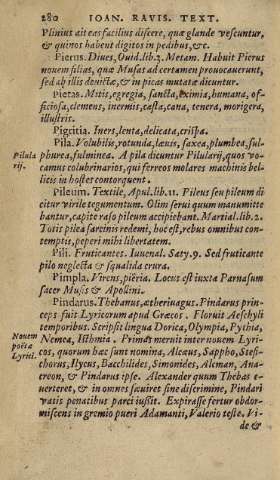 280 IOAN. RAVIS. TEXT.
Plinius ait eas facilius discere, quæ glande vescuntur,
& quinos habent digitos in pedibus, &c.
Pierus. Diues, Ouid. lib. 2. Metam. Habuit Pierus
nouem filias, quæ Musas ad certamen prouocauerunt,
sed ab illis deuictæ, & in picas mutatæ dicuntur.
Pietas. Mitis, egregia, sancta, eximia, humana, of-
ficiosa, clemens, inermis, casta, cana, tenera, morigera,
illustris.
Pigritia. Iners, lenta, delicata, crispa.
Pila. Volubilis, rotunda, læuis, saxea, plumbea, sul-
Pilula rij.
phurea, fulminea. A pila dicuntur Pilularij, quos vo-
camus colubrinarios, qui ferreos molares machinis bel-
licis in hostes contorquent.
Pileum. Textile, Apul. lib. 11. Pileus seu pileum di
citur virile tegumentum. Olim serui quum manumitte
bantur, capite raso pileum accipiebant. Martial. lib. 2.
Totis pilea sarcinis redemi, hoc est, rebus omnibus con-
temptis, peperi mihi libertatem.
Pili. Fruticantes. Iuuenal. Saty. 9. Sed fruticante
pilo neglecta & squalida crura.
Pimpla. Virens, pieria. Locus est iuxta Parnasum
sacer Musis & Apollini.
Pindarus. Thebanus, ætheriuagus. Pindarus prin-
ceps fuit Lyricorum apud Græcos. Floruit Aeschyli
temporibus. Scripsit lingua Dorica, Olympia, Pythia,
Nouem poëtæ Lyrici.
Nemea, Isthmia. Primas meruit inter nouem Lyri-
cos, quorum hæc sunt nomina, Alcæus, Sappho, Stesi-
chorus, Ibycus, Bacchilides, Simonides, Alcman, Ana-
creon, & Pindarus ipse. Alexander quum Thebas e-
uerteret, & in omnes sæuiret sine discrimine, Pindari
vatis penatibus parci iussit. Expirasse fertur obdor-
miscens in gremio pueri Adamanti, Valerio teste. Vi-
de &